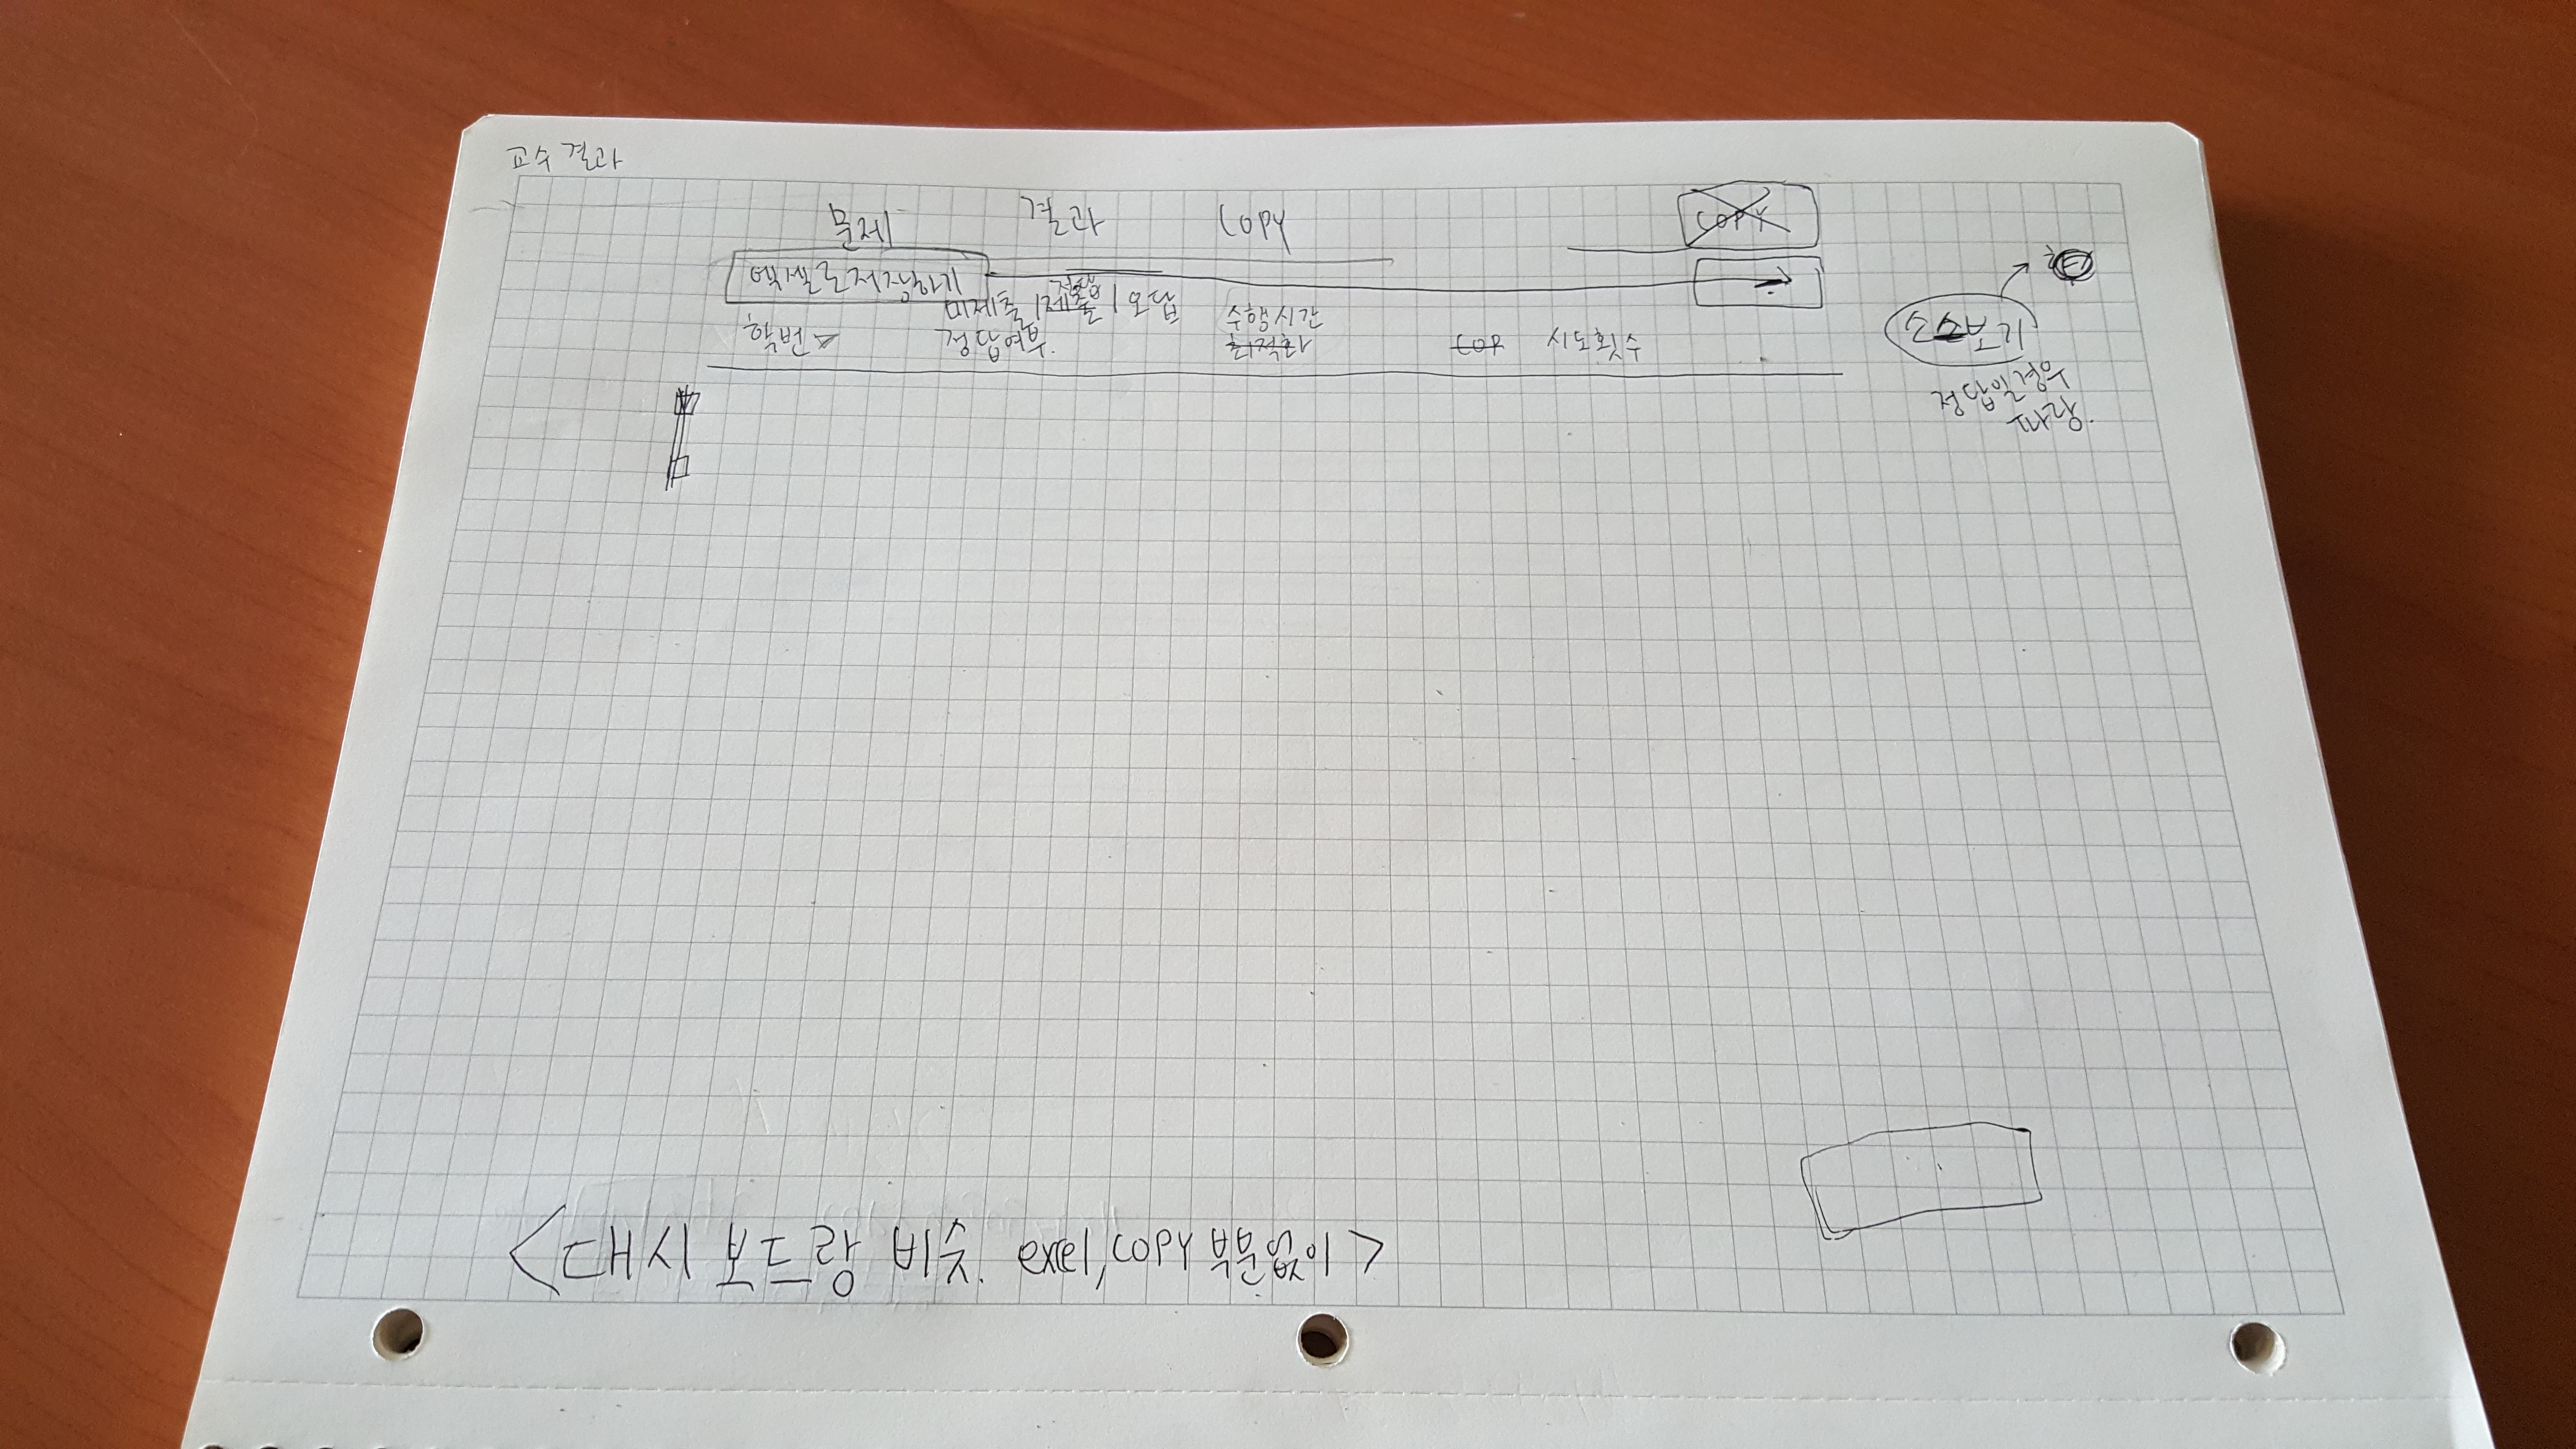 교수 결과
문제 결과 Copy
COPY
엑셀로저장하기
미제출 / 제출 / 오답
정답
학번 정답여부. 수행시간
최적화 COP 시도횟수
소스보기
정답일경우
파랑.
<대시보드랑 비슷. excel, copy 부분없이>